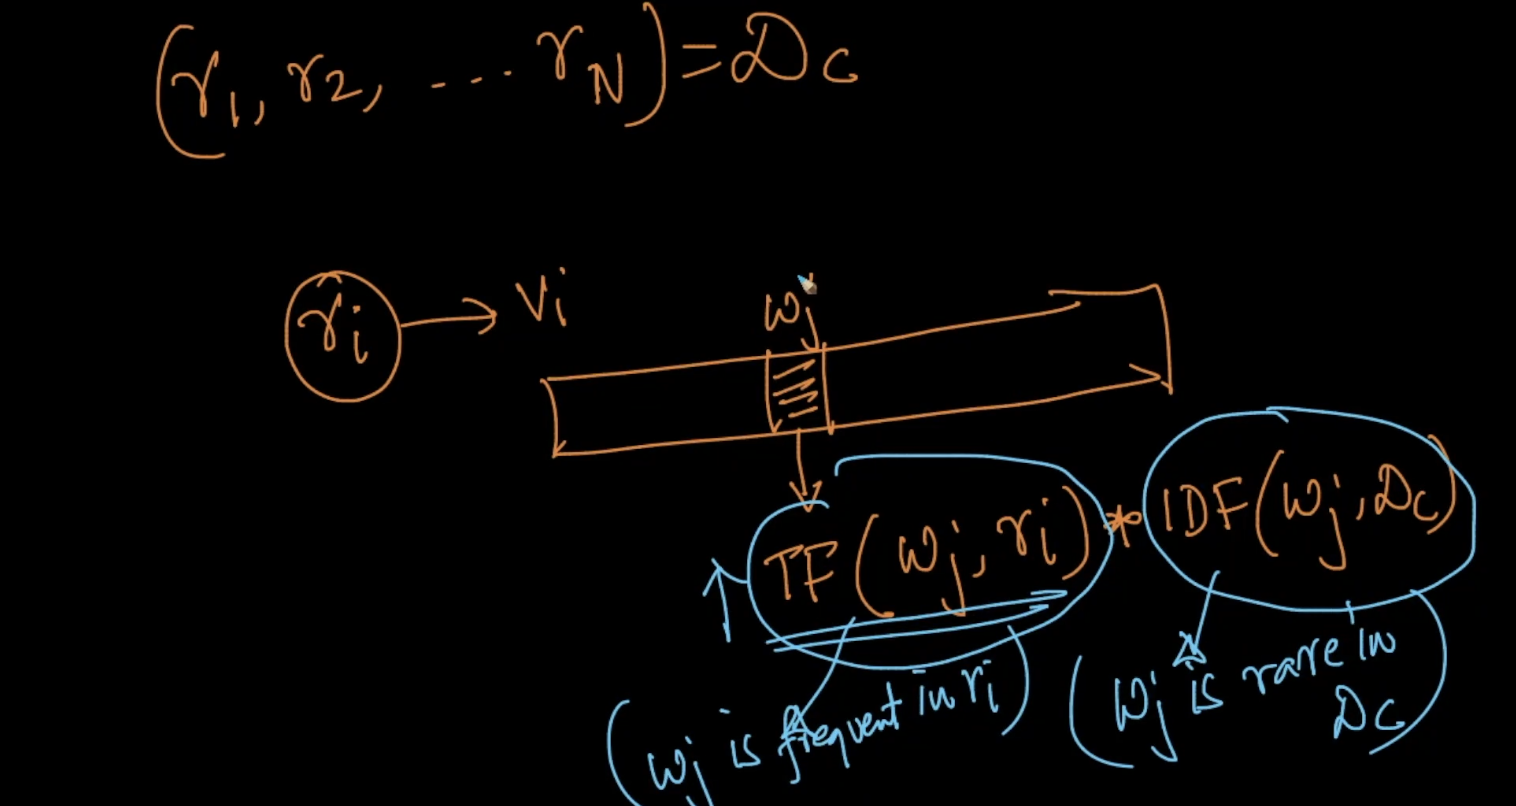 (r1, r2, ... rN) = Dc
ri → Vi
wj
TF(wj, ri) * IDF(wj, Dc)
(wj is frequent in ri)
(wj is rare in Dc)